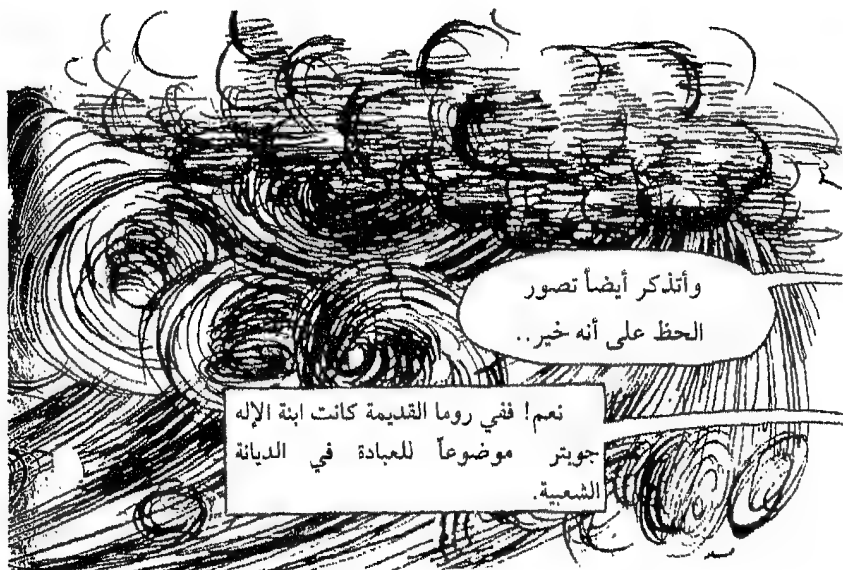 وأتذكر أيضاً تصور
الحظ على أنه خير..
نعم! ففي روما القديمة كانت ابنة الإله
جوبتر موضوعاً للعبادة في الديانة
الشعبية.